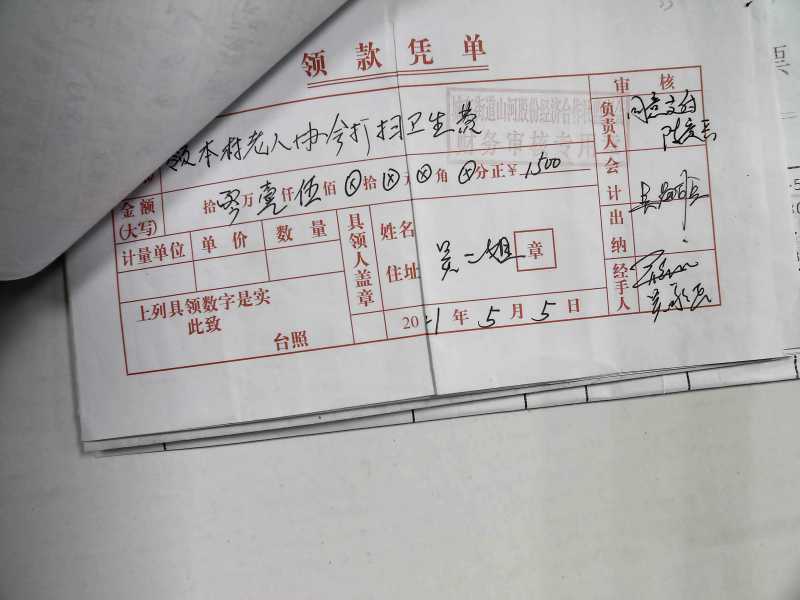 领款凭单
领本村老人协会打扫卫生费
金额
(大写)
拾零万壹仟伍佰⊗拾⊗元⊗角⊗分正¥1500
计量单位 单价 数量
具领人盖章
姓名
住址
吴二姐
章
上列具领数字是实
此致
台照
2021年5月5日
审核
负责人
同意支付
会计
出纳
经手人
街道山河股份经济合作
财务审核专用